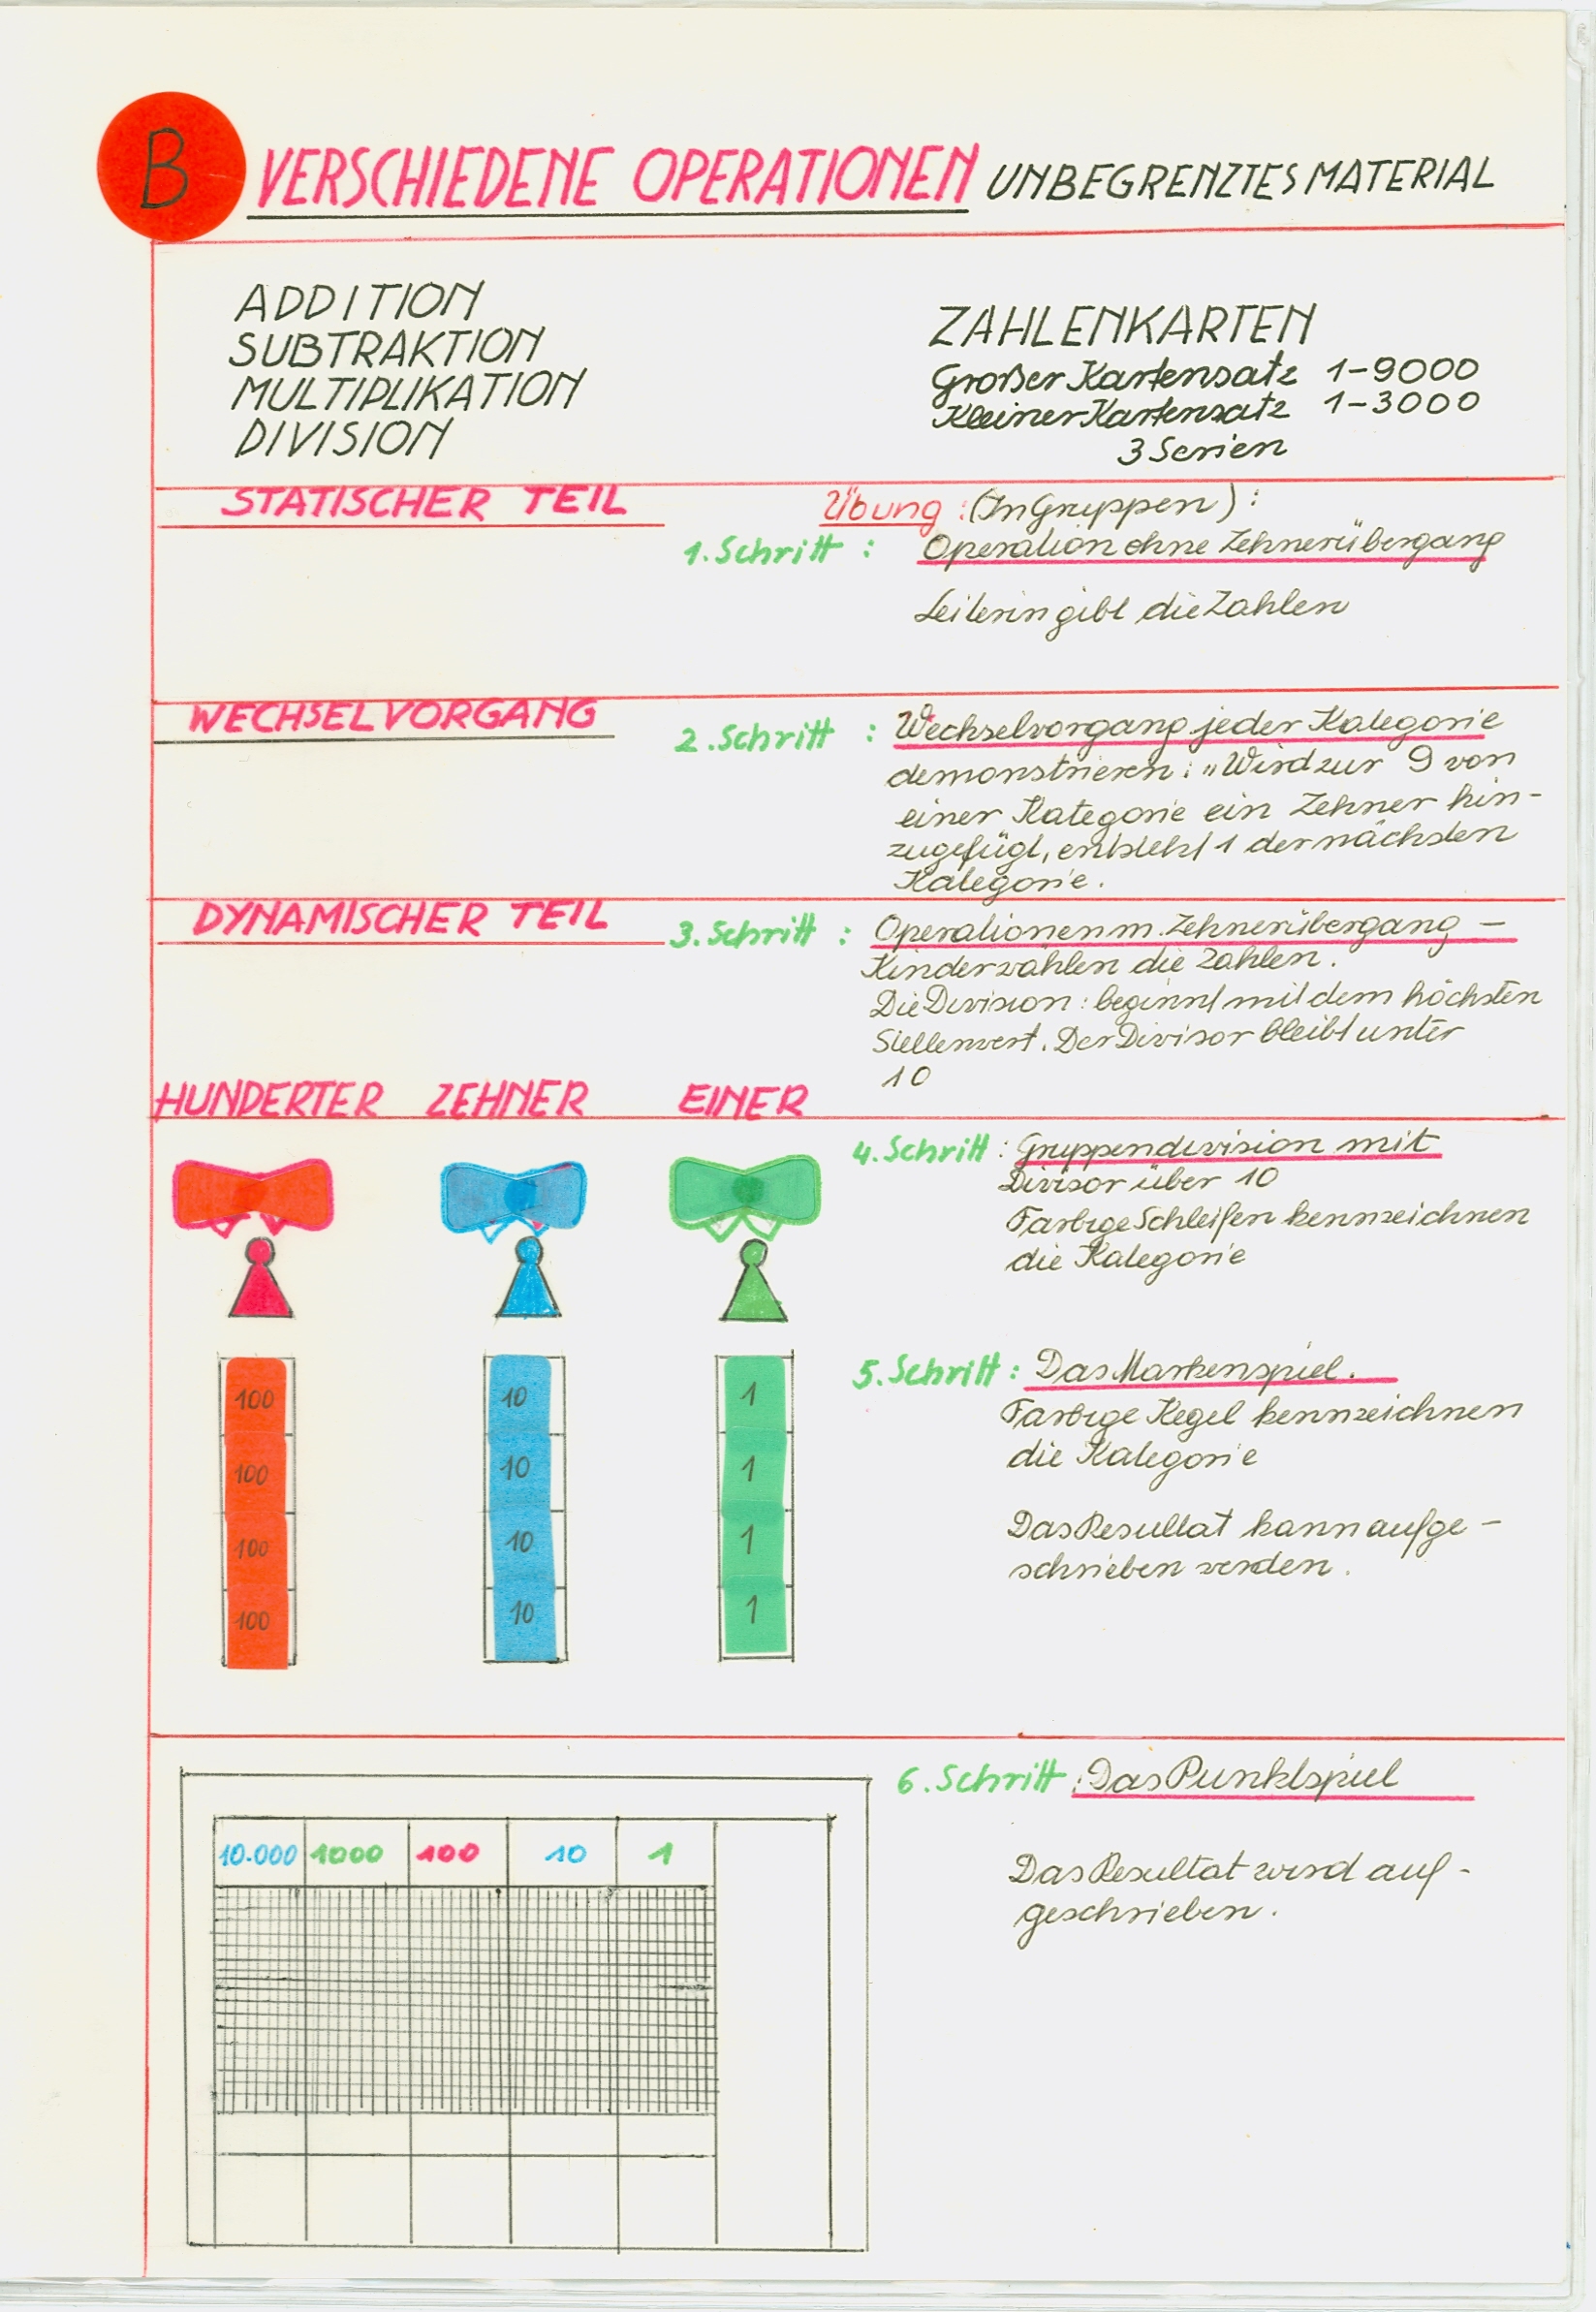 B
VERSCHIEDENE OPERATIONEN UNBEGRENZTES MATERIAL
ADDITION
SUBTRAKTION
MULTIPLIKATION
DIVISION
ZAHLENKARTEN
Großer Kartensatz 1-9000
Kleiner Kartensatz 1-3000
3 Serien
STATISCHER TEIL
Übung: (In Gruppen):
1. Schritt : Operation ohne Zehnerübergang
Leiterin gibt die Zahlen
WECHSELVORGANG
2. Schritt : Wechselvorgang jeder Kategorie
demonstrieren: „Wird zur 9 von
einer Kategorie ein Zehner hin-
zugefügt, entsteht 1 der nächsten
Kategorie.
DYNAMISCHER TEIL
3. Schritt : Operationen m. Zehnerübergang -
Kinder wählen die Zahlen.
Die Division: beginnt mit dem höchsten
Stellenwert. Der Divisor bleibt unter
10
HUNDERTER ZEHNER EINER
4. Schritt : Gruppendivision mit
Divisor über 10
Farbige Schleifen kennzeichnen
die Kategorie
5. Schritt : Das Markenspiel.
Farbige Kegel kennzeichnen
die Kategorie
Das Resultat kann aufge-
schrieben werden.
100 10 1
100 10 1
100 10 1
100 10 1
6. Schritt : Das Punktspiel
Das Resultat wird auf-
geschrieben.
10.000 1000 100 10 1